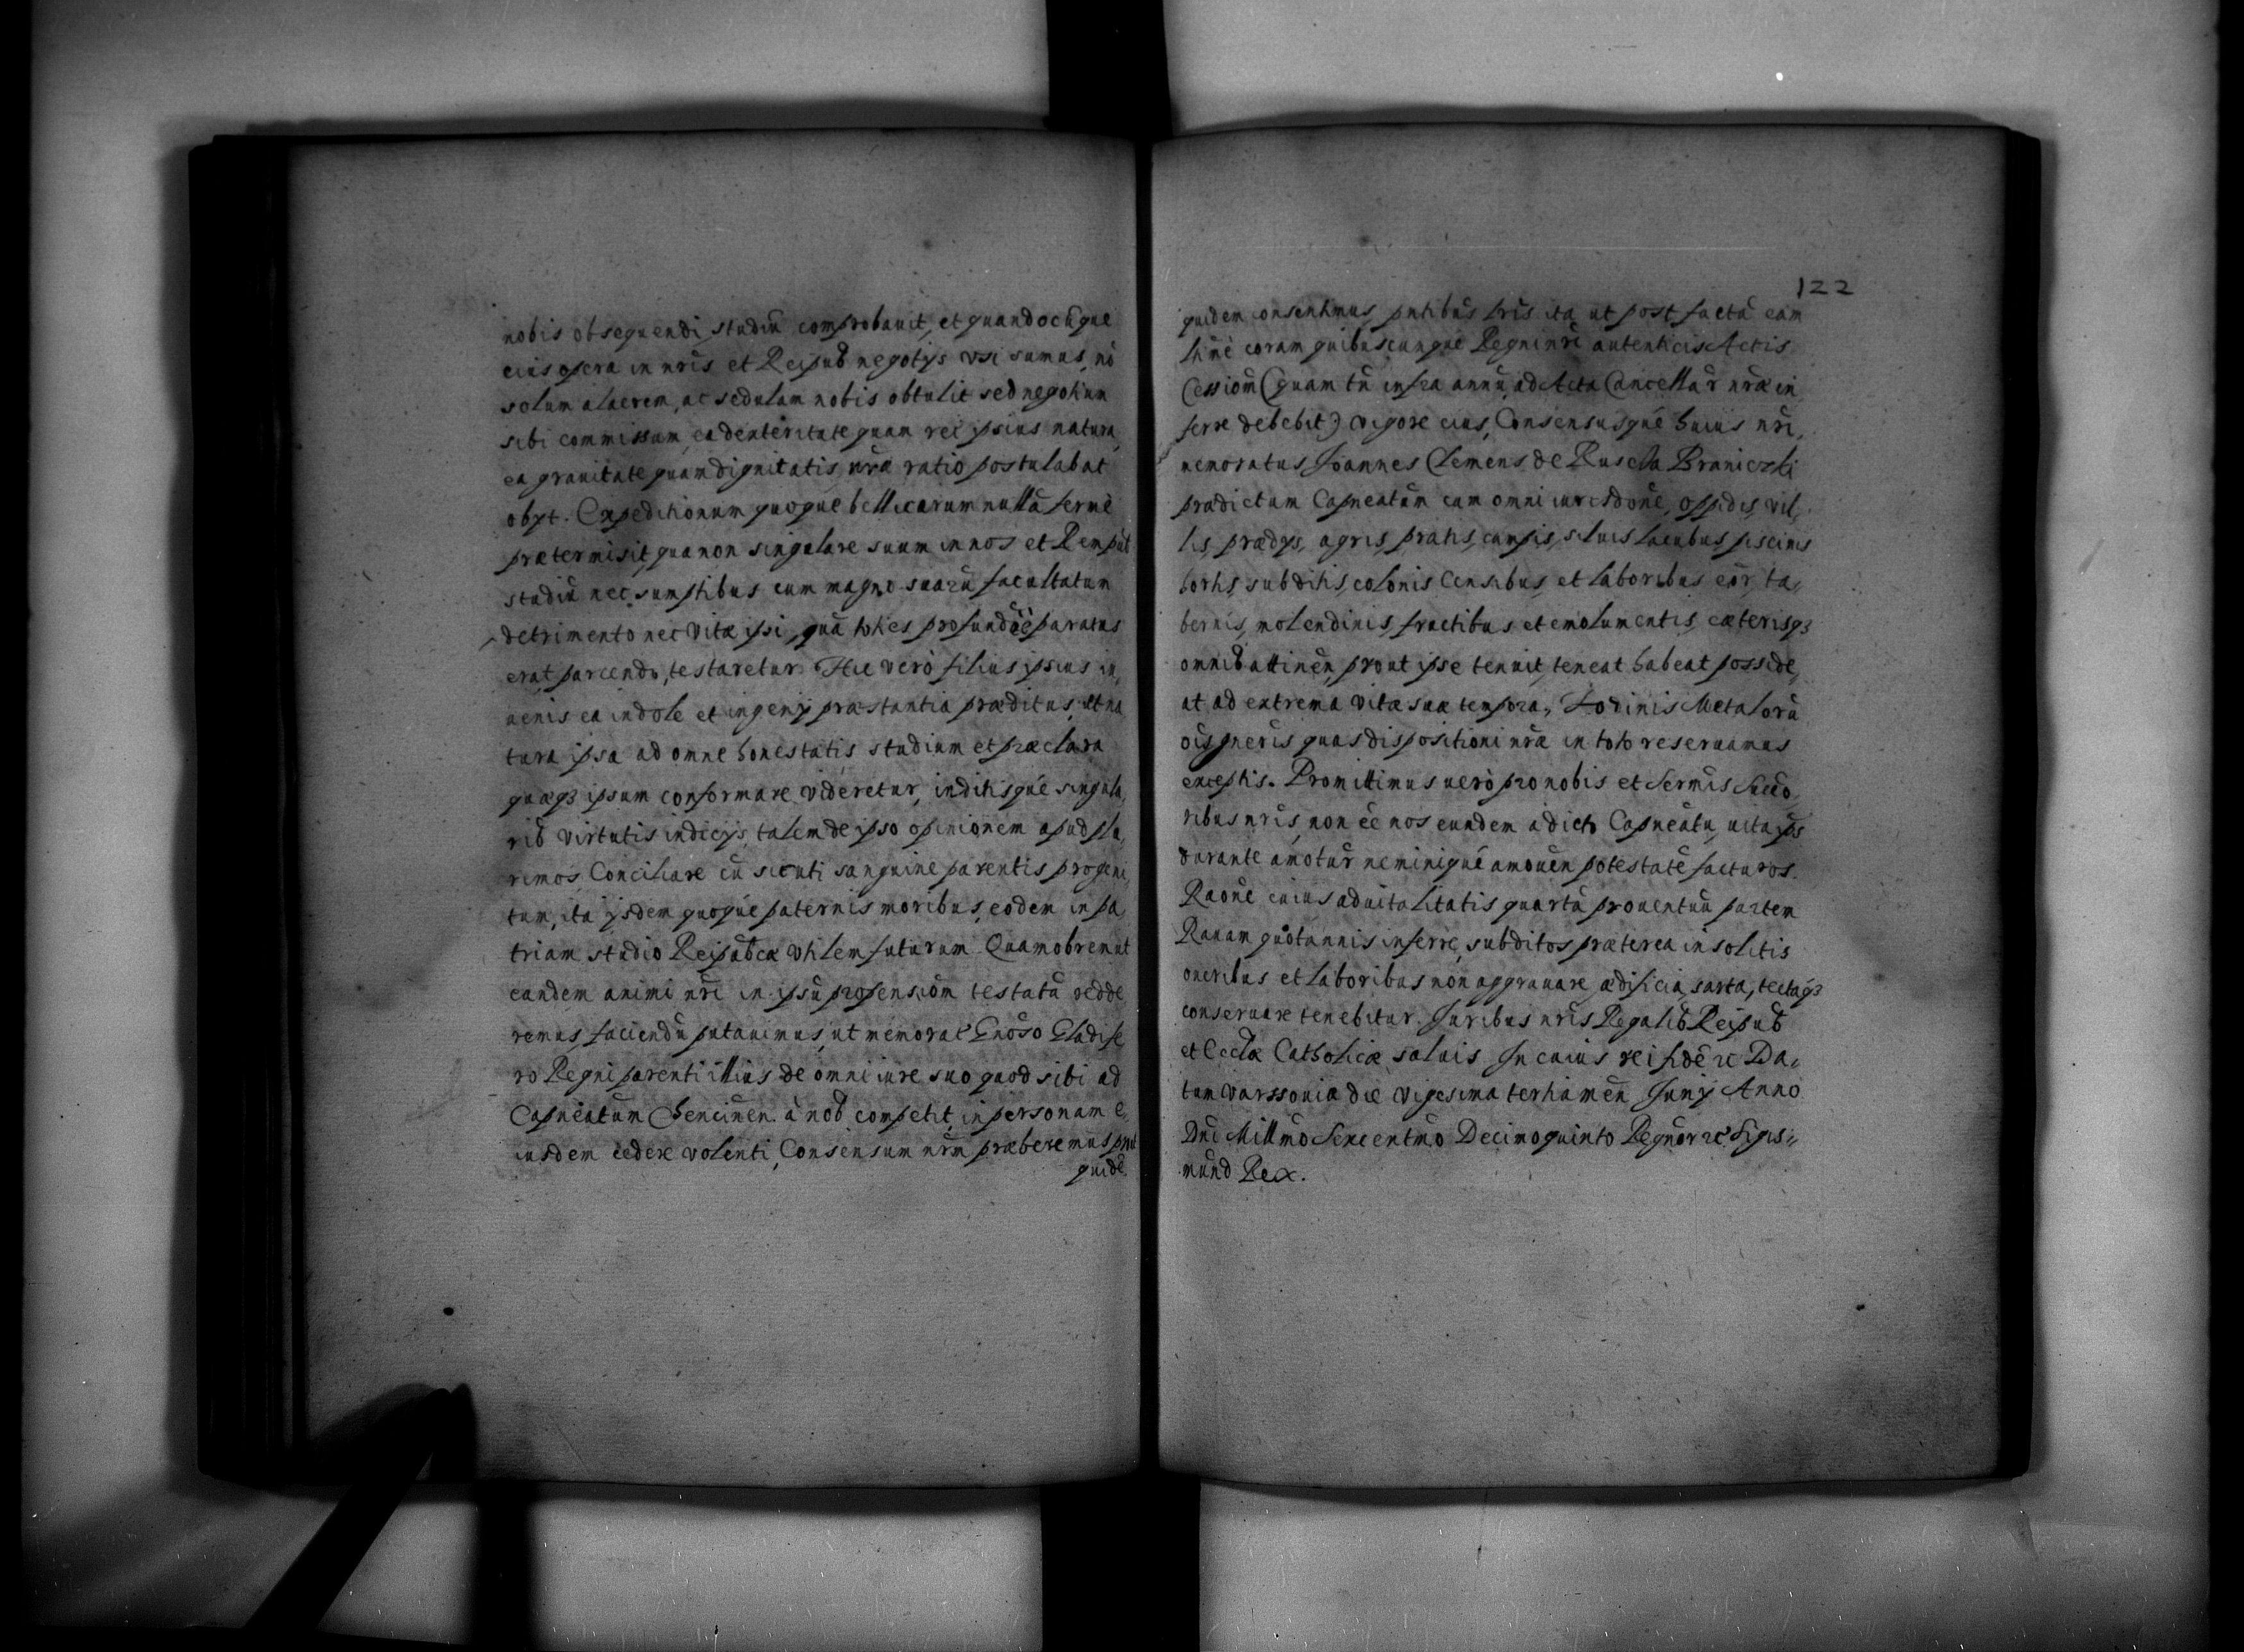 nobis obsequendi studiū comprobauit, et quandocūque
eius opera in nr̃is et Reipub negotys vsi sumus, nō
solum alacrem, ac sedulam nobis obtulit sed negotium
sibi commissum, ea dexteritate quam rei ipsius natura,
ea grauitate quam dignitatis nr̃æ ratio postulabat
obyt. Expeditionum quoque bellicarum nullā fermè
prætermisit, qua non singulare suum in nos et Rempub
studiū nec sumptibus cum magno suarū facultatum
detrimento nec vitæ ipsi, quā toties profundere paratus
erat parcendo, testaretur. Hic verò filius ipsius in,
uenis ea indole et ingenij præstantia præditus, ut na
tura ipsa ad omne honestatis studium et præclara
quæqʒ ipsum conformare videretur, inditisqué singula,
rib virtutis indicijs, talem de ipso opinionem apud plu,
rimos Conciliare cū sicuti sanguine parentis progeni,
tum, ita ijsdem quoqúe paternis moribus, eodem in pa,
triam studio Reipubcæ vtilem futurum. Quamobrem ut
eandem animi nr̃i in ipsū propensiōm testatā redde
remus faciendū putauimus, ut memorat Gnōso Gladife
ro Regni parenti illius de omni iure suo quod sibi ad
Capneātum Chencinen. à nob competit, in personam e,
iusdem cedere volenti, Consensum nr̃m præberemus prout
quidē
122
quidem consentimus pntibūs lr̃is ita ut post factā eam
coram quibuscunque Regni nr̃i autenticis Actis
Cessiom̄ (quam tn̄ infra annū, ad Acta Cancellar̄ nr̃æ in
ferre debebit) vigore eius, Consensusqué huius nr̃i,
memoratus Joannes Clemens de Ruscza Braniczki
prædictum Capneatūm cum omni iurisdōne, oppidis, vil,
lis, prædijs, agris, pratis, campis, siluis lacubus piscinis
hortis, subditis, colonis Censibus, et laboribus eōr, ta,
bernis, molendinis, fructibus et emolumentis, cæterisqʒ
omnib attinēn, prout ipse tenuit, teneat habeat posside,
at ad extrema vitæ suæ tempora, Fodinis Metalorū
ōis gn̄eris quas dispositioni nr̃æ in toto reseruamus
exceptis. Promittimus uerò pro nobis et Serm̄is Succo,
ribus nr̃is, non eē nos eundem a dicto Capneātu, uita ips
durante amotur̄ neminiqué amouēn potestatē facturos.
Raōne cuius aduitalitatis quartā prouentuū partem
Rauam quotannis inferre, subditos præterea insolitis
oneribus et laboribus non aggrauare ædificia, sarta, tectaqʒ
conseruare tenebitur. Juribus nr̃is Regalib Reipub
et Eccl̄æ Catholicæ saluis. In cuius rei fidē &c Da,
tum Varssouiæ die vigesima tertia mēn Junij Anno
Dn̄i Millm̄o Sexcentm̄o Decimoquinto Regnor̄ &c Sigis,,
mund Rex.